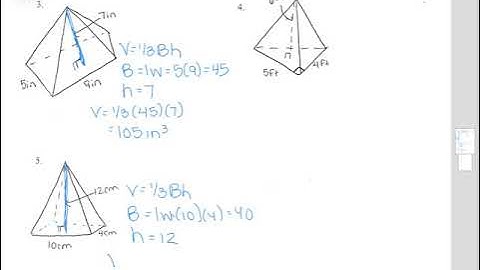 3.
7in
5in
9in
V=1/3Bh
B=lw=5(9)=45
h=7
V=1/3(45)(7)
=105in³
4.
5ft
4ft
5.
12cm
10cm
4cm
V=1/3Bh
B=lw(10)(4)=40
h=12